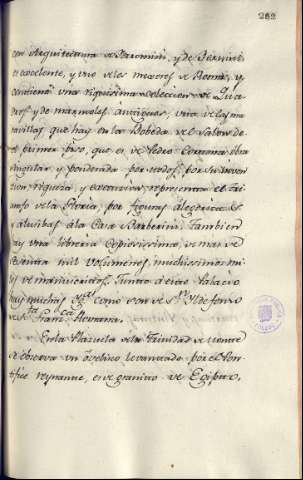 282
con Arquitectura de Boromini, y de Bernini
es excelente, y uno de los mayores de Roma, y
contiene una riquisima coleccion de Qua
dros y de marmoles antiguos, una de las ma
ravillas que hay en la Bobeda del Salon de
el primer piso, que es de Pedro Cortona obra
singular, y ponderada por todos, por su inven
cion riqueza y execucion representa el tri
unfo de la Gloria, por figuras alegoricas
y alusibas à la Casa Barberini. Tambien
hay una libreria copiosissima, de mas de
sesenta mil volumenes, muchissimos
de manuscritos. Junto à este Palacio
hay muchas como son de Sn. Yldefonso
de Sta. Franca. Romana.
En la Plazuela de la Trinidad de monte
se observa un obelisco levantado por el Pon
tifice reynante, es de granito de Egipto,